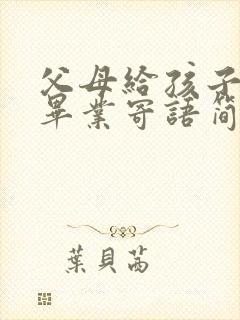 父母给孩子
畢業寄語简
葉貝茜